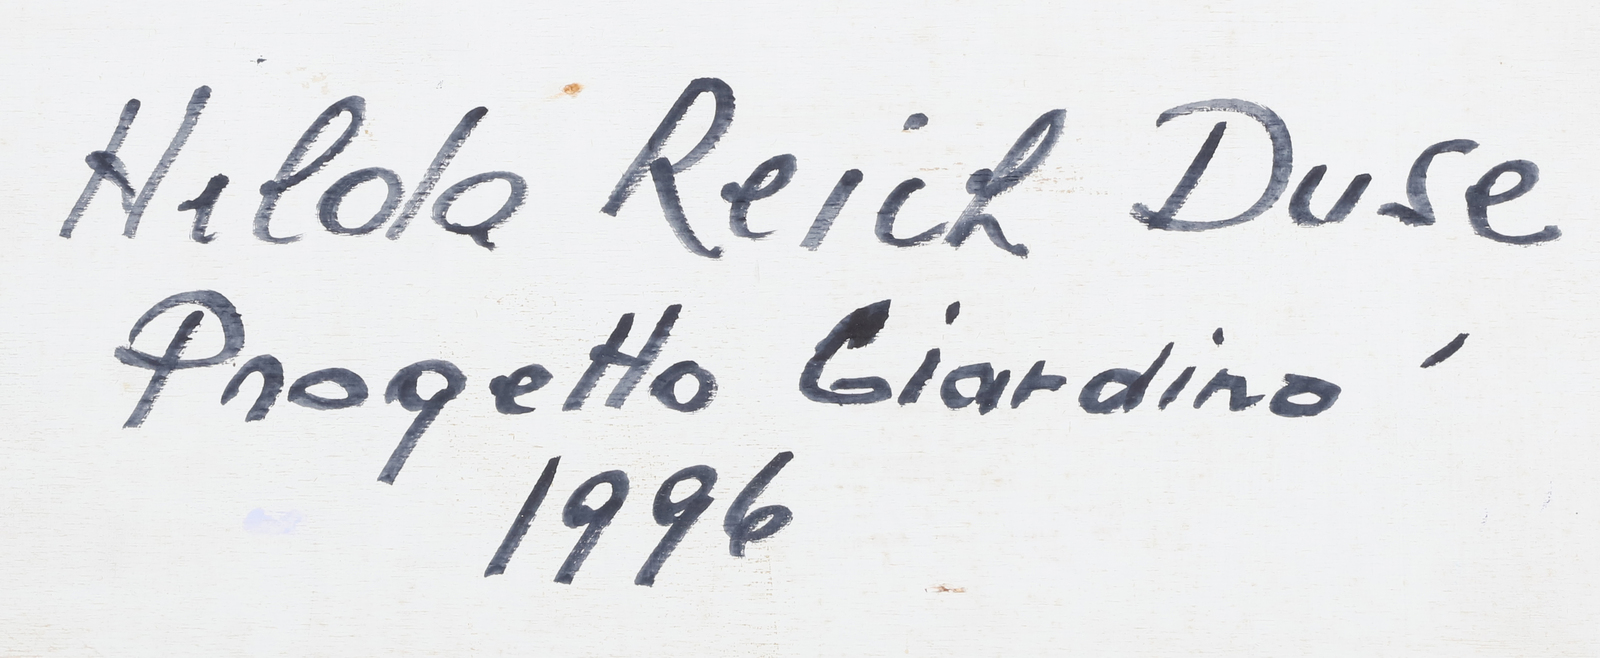 Hilda Reich Duse
Progetto Giardino'
1996